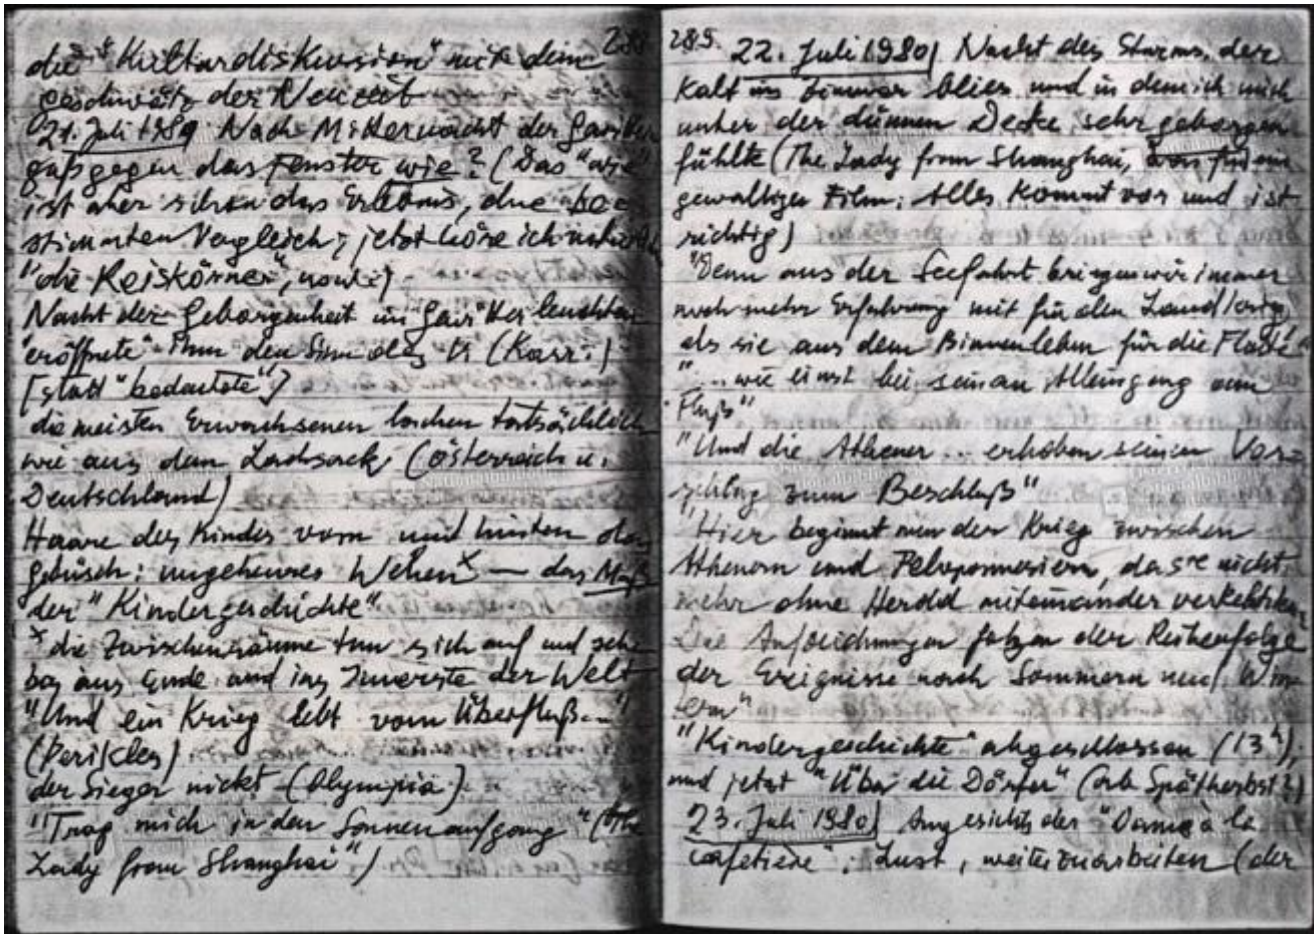 288
die "Kulturdiskussion" mit dem
Geschwätz der Neuzeit
21. Juli 1980 Nach Mitternacht der
gegen das Fenster wie? (Das "wie"
ist aber schon das Erlebnis, ohne be-
stimmten Vergleich; jetzt höre ich
"die Reiskörner",
Nacht der Geborgenheit im
"eröffnete" ihm den Sinn des
[statt "bedeutete"]
die meisten Erwachsenen lachen tatsächlich
wie aus dem Lachsack (Österreich u.
Deutschland)
Haare des Kindes vorn und hinten
gebüsch: ungeheures Wehen x — das Maß
der "Kindergeschichte"
x die Zwischenräume tun sich auf und
bis ans Ende und ins Innerste der Welt
"Und ein Krieg lebt vom Überfluß..."
(Perikles)
der Sieger nickt (Olympia)
"Trag mich in den Sonnenaufgang" (The
Lady from Shanghai")
289.
22. Juli 1980 Nacht des Sturms, der
kalt ins Zimmer blies und in dem ich mich
unter der dünnen Decke sehr geborgen
fühlte (The Lady from Shanghai, ein
gewaltiger Film: Alles kommt vor und ist
richtig)
"Denn aus der Seefahrt bringen wir immer
noch mehr Erfahrung mit für den Landkrieg,
als sie aus dem Binnenleben für die Flotte"
"... wie einst bei seinem Alleingang zum
Fluß"
"Und die Athener ... erhoben seinen Vor-
schlag zum Beschluß"
"Hier beginnt nun der Krieg zwischen
Athenern und Peloponnesiern, da sie nicht
mehr ohne Herold miteinander verkehrten
Die Aufzeichnungen folgen der Reihenfolge
der Ereignisse nach Sommern und Win-
tern"
"Kindergeschichte" abgeschlossen (13h),
und jetzt "Über die Dörfer" (ab Spätherbst?)
23. Juli 1980 Angesichts der "Dame à la
cafetière": Lust, weiterzuarbeiten (der